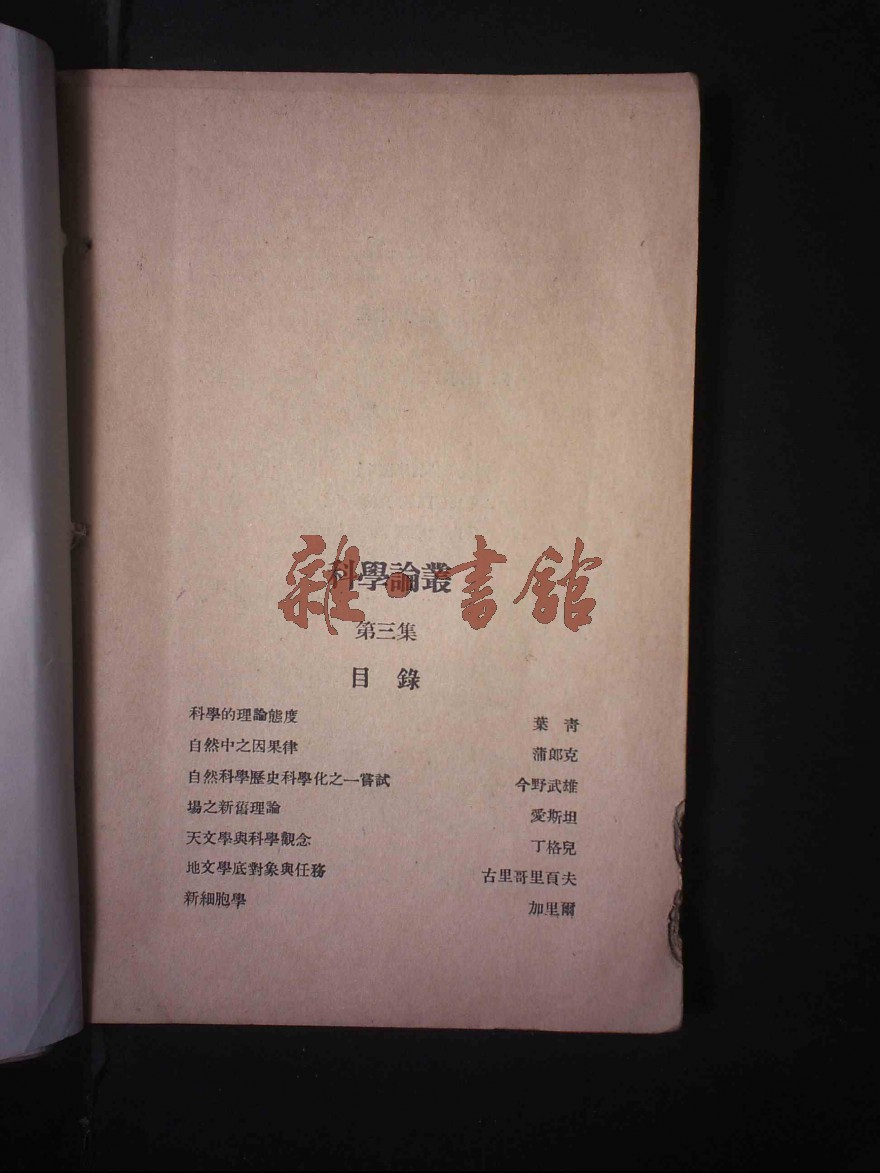 科學論叢
雜·書館
第三集
目錄
科學的理論態度 葉青
自然中之因果律 蒲郎克
自然科學歷史科學化之一嘗試 今野武雄
場之新舊理論 愛斯坦
天文學與科學觀念 丁格兒
地文學底對象與任務 古里哥里頁夫
新細胞學 加里爾